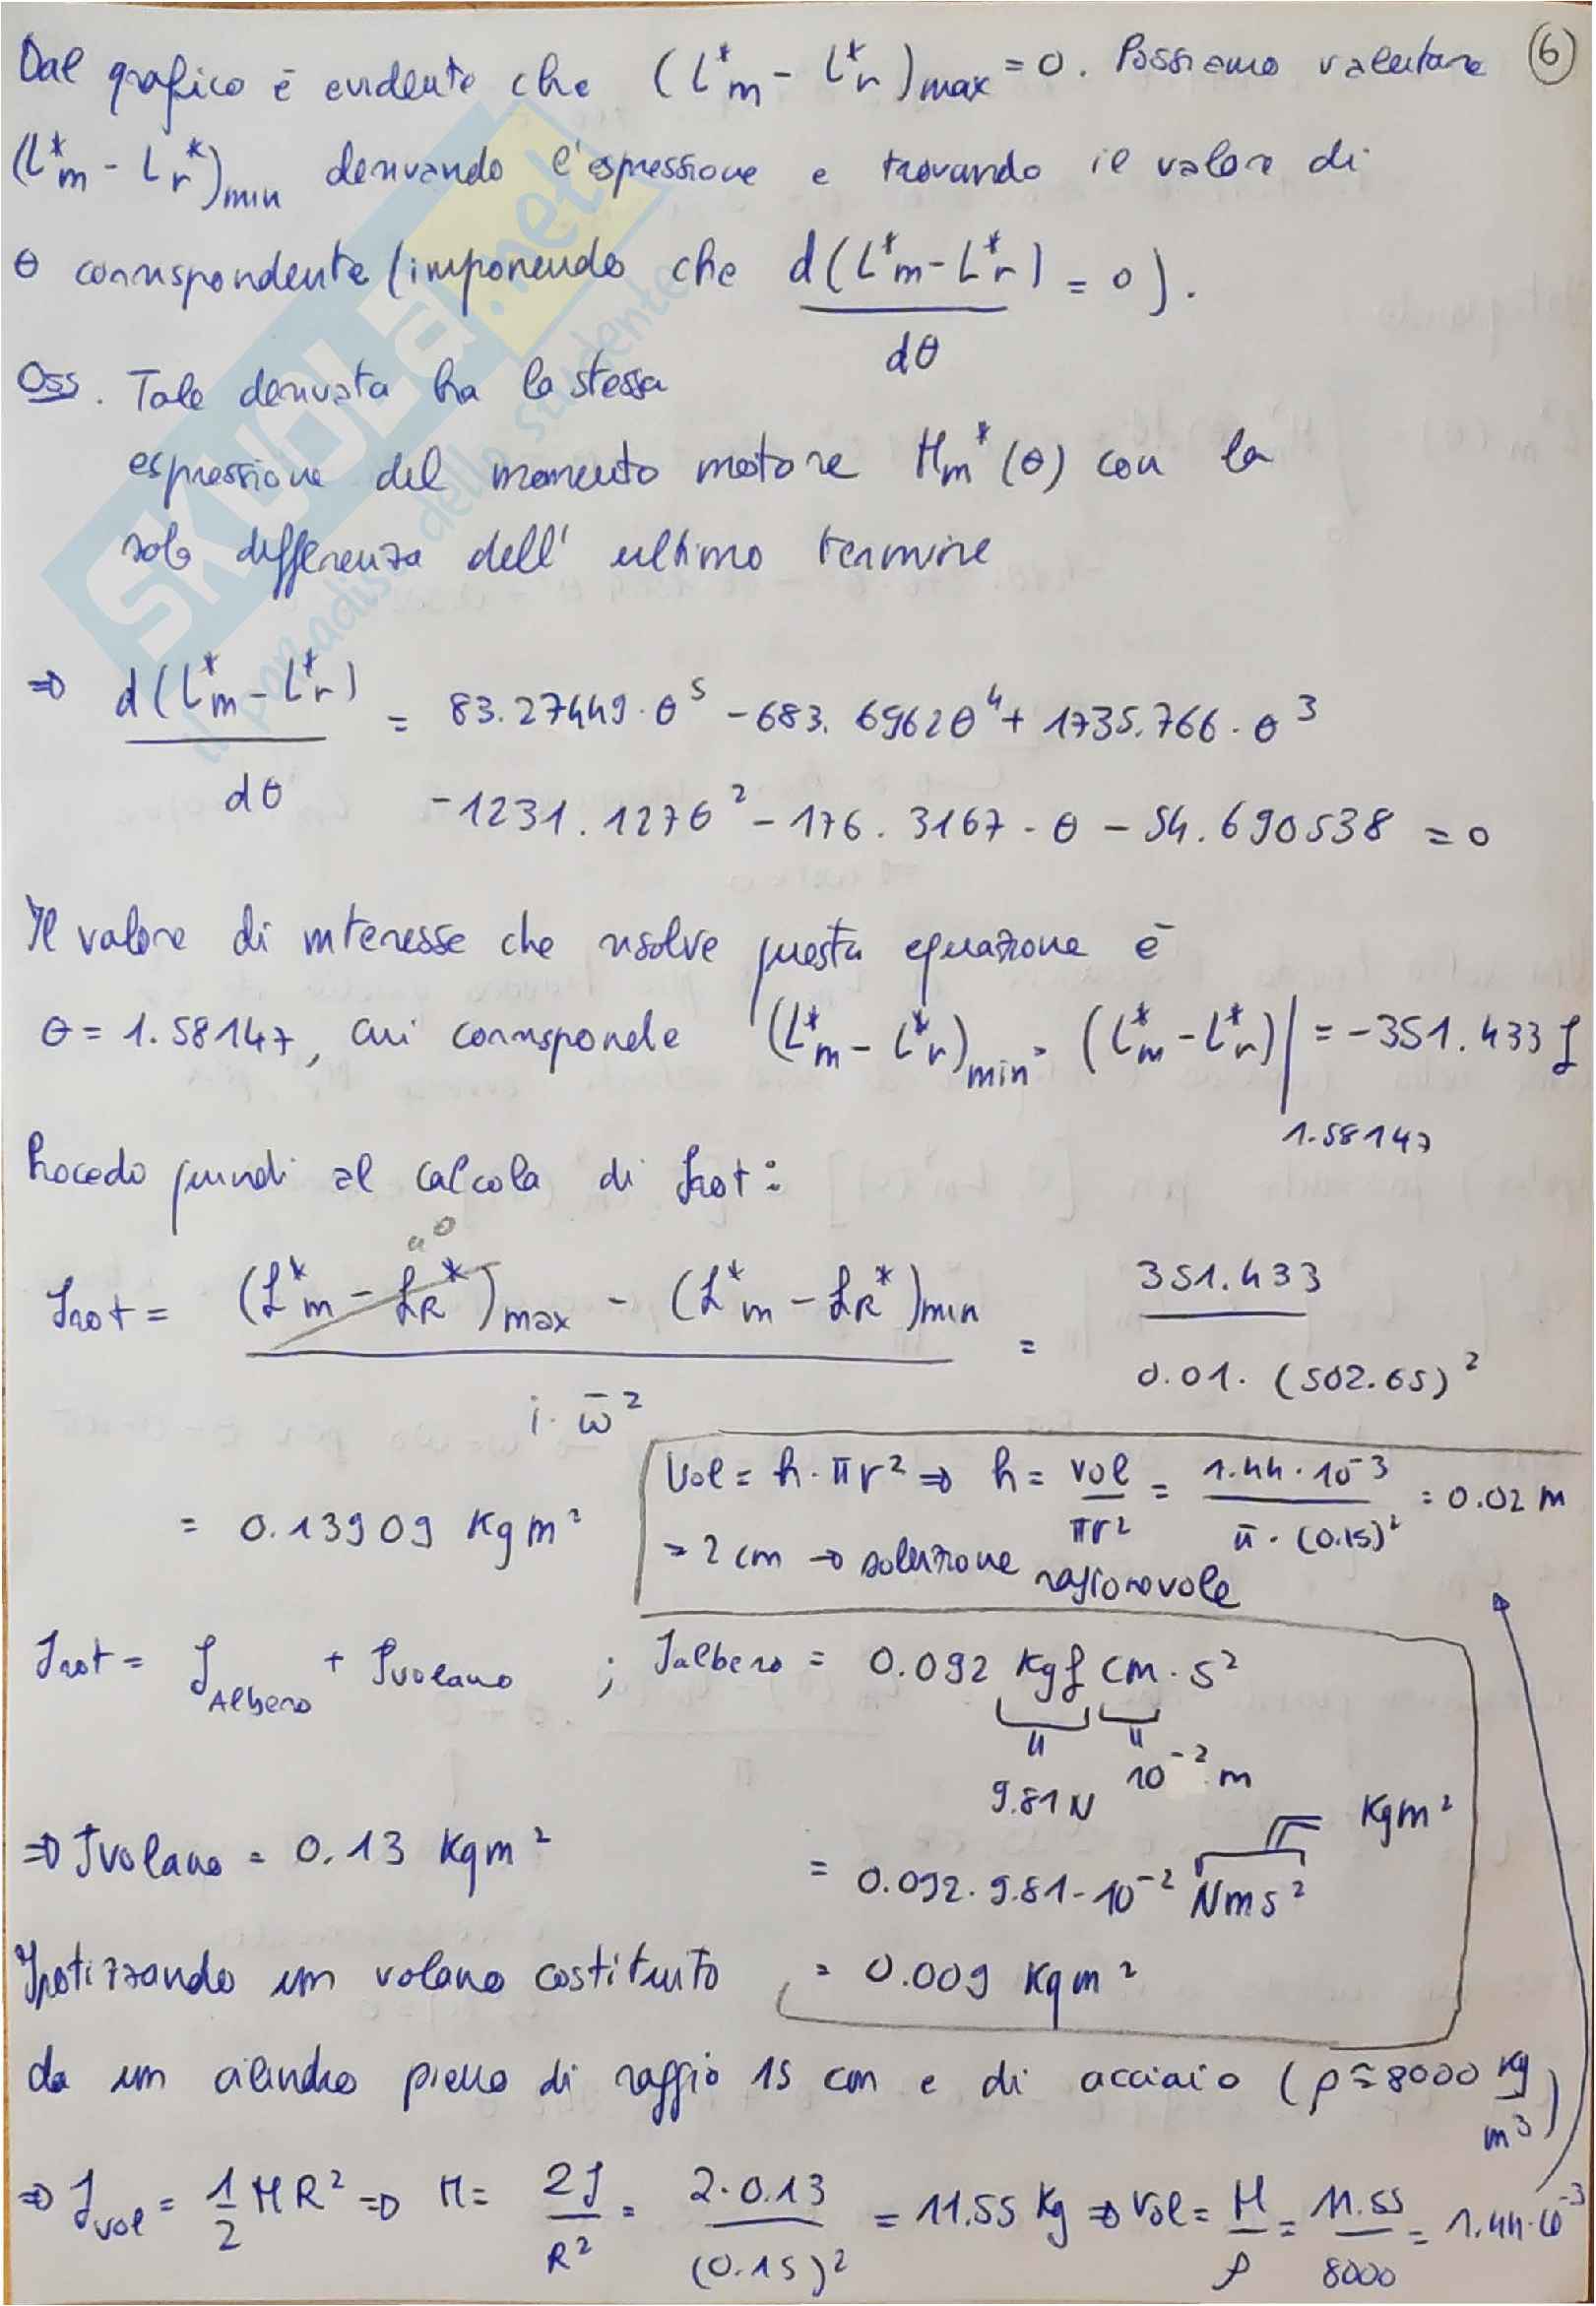 Dal grafico è evidente che (L*m - L*r)max = 0. Possiamo valutare 6
(L*m - Lr*)min derivando l'espressione e trovando il valore di
θ corrispondente (imponendo che d(L*m - L*r)/dθ = 0).
Oss. Tale derivata ha la stessa
espressione del momento motore Mm*(θ) con la
sola differenza dell'ultimo termine
⇒ d(L*m - L*r)/dθ = 83.27449·θ^5 - 683.6962θ^4 + 1735.766·θ^3
-1231.127θ^2 - 176.3167·θ - 54.690538 = 0
Il valore di interesse che risolve questa equazione è
θ = 1.58147, cui corrisponde (L*m - L*r)min = (L*m - L*r)|1.58147 = -351.433 J
Procedo quindi al calcolo di Jrot:
Jrot = ((L*m - LR*)max - (L*m - LR*)min)/(i·ω̄^2) = 351.433/(0.01·(502.65)^2)
" 0
= 0.13909 Kgm²
Vol = h·πr² ⇒ h = vol/πr² = 1.44·10^-3/(π·(0.15)²) = 0.02 m
= 2 cm → soluzione ragionevole
Jrot = JAlbero + Jvolano ; Jalbero = 0.092 Kgf cm·s²
" "
9.81N 10^-2 m
⇒ Jvolano = 0.13 Kgm²
= 0.092·9.81·10^-2 Nms² Kgm²
= 0.009 Kgm²
Ipotizzando un volano costituito
da un cilindro pieno di raggio 15 cm e di acciaio (ρ ≃ 8000 Kg/m³)
⇒ Jvol = 1/2 MR² ⇒ M = 2J/R² = 2·0.13/(0.15)² = 11.55 Kg ⇒ Vol = M/ρ = 11.55/8000 = 1.44·10^-3
SKUOLA.net
il paradiso dello studente